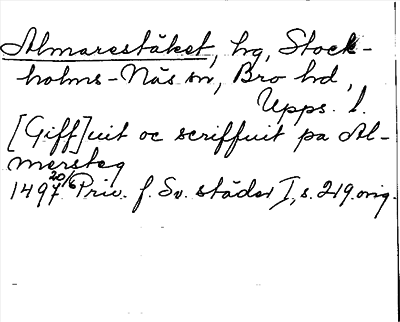 Almarestäket, hg, Stock-
holms-Näs sn, Bro hd,
Upps. l.
[Giff]uit oc scriffuit pa Al-
mersteg
1497 20/6 Priv. f. Sv. städer I, s. 219. orig.